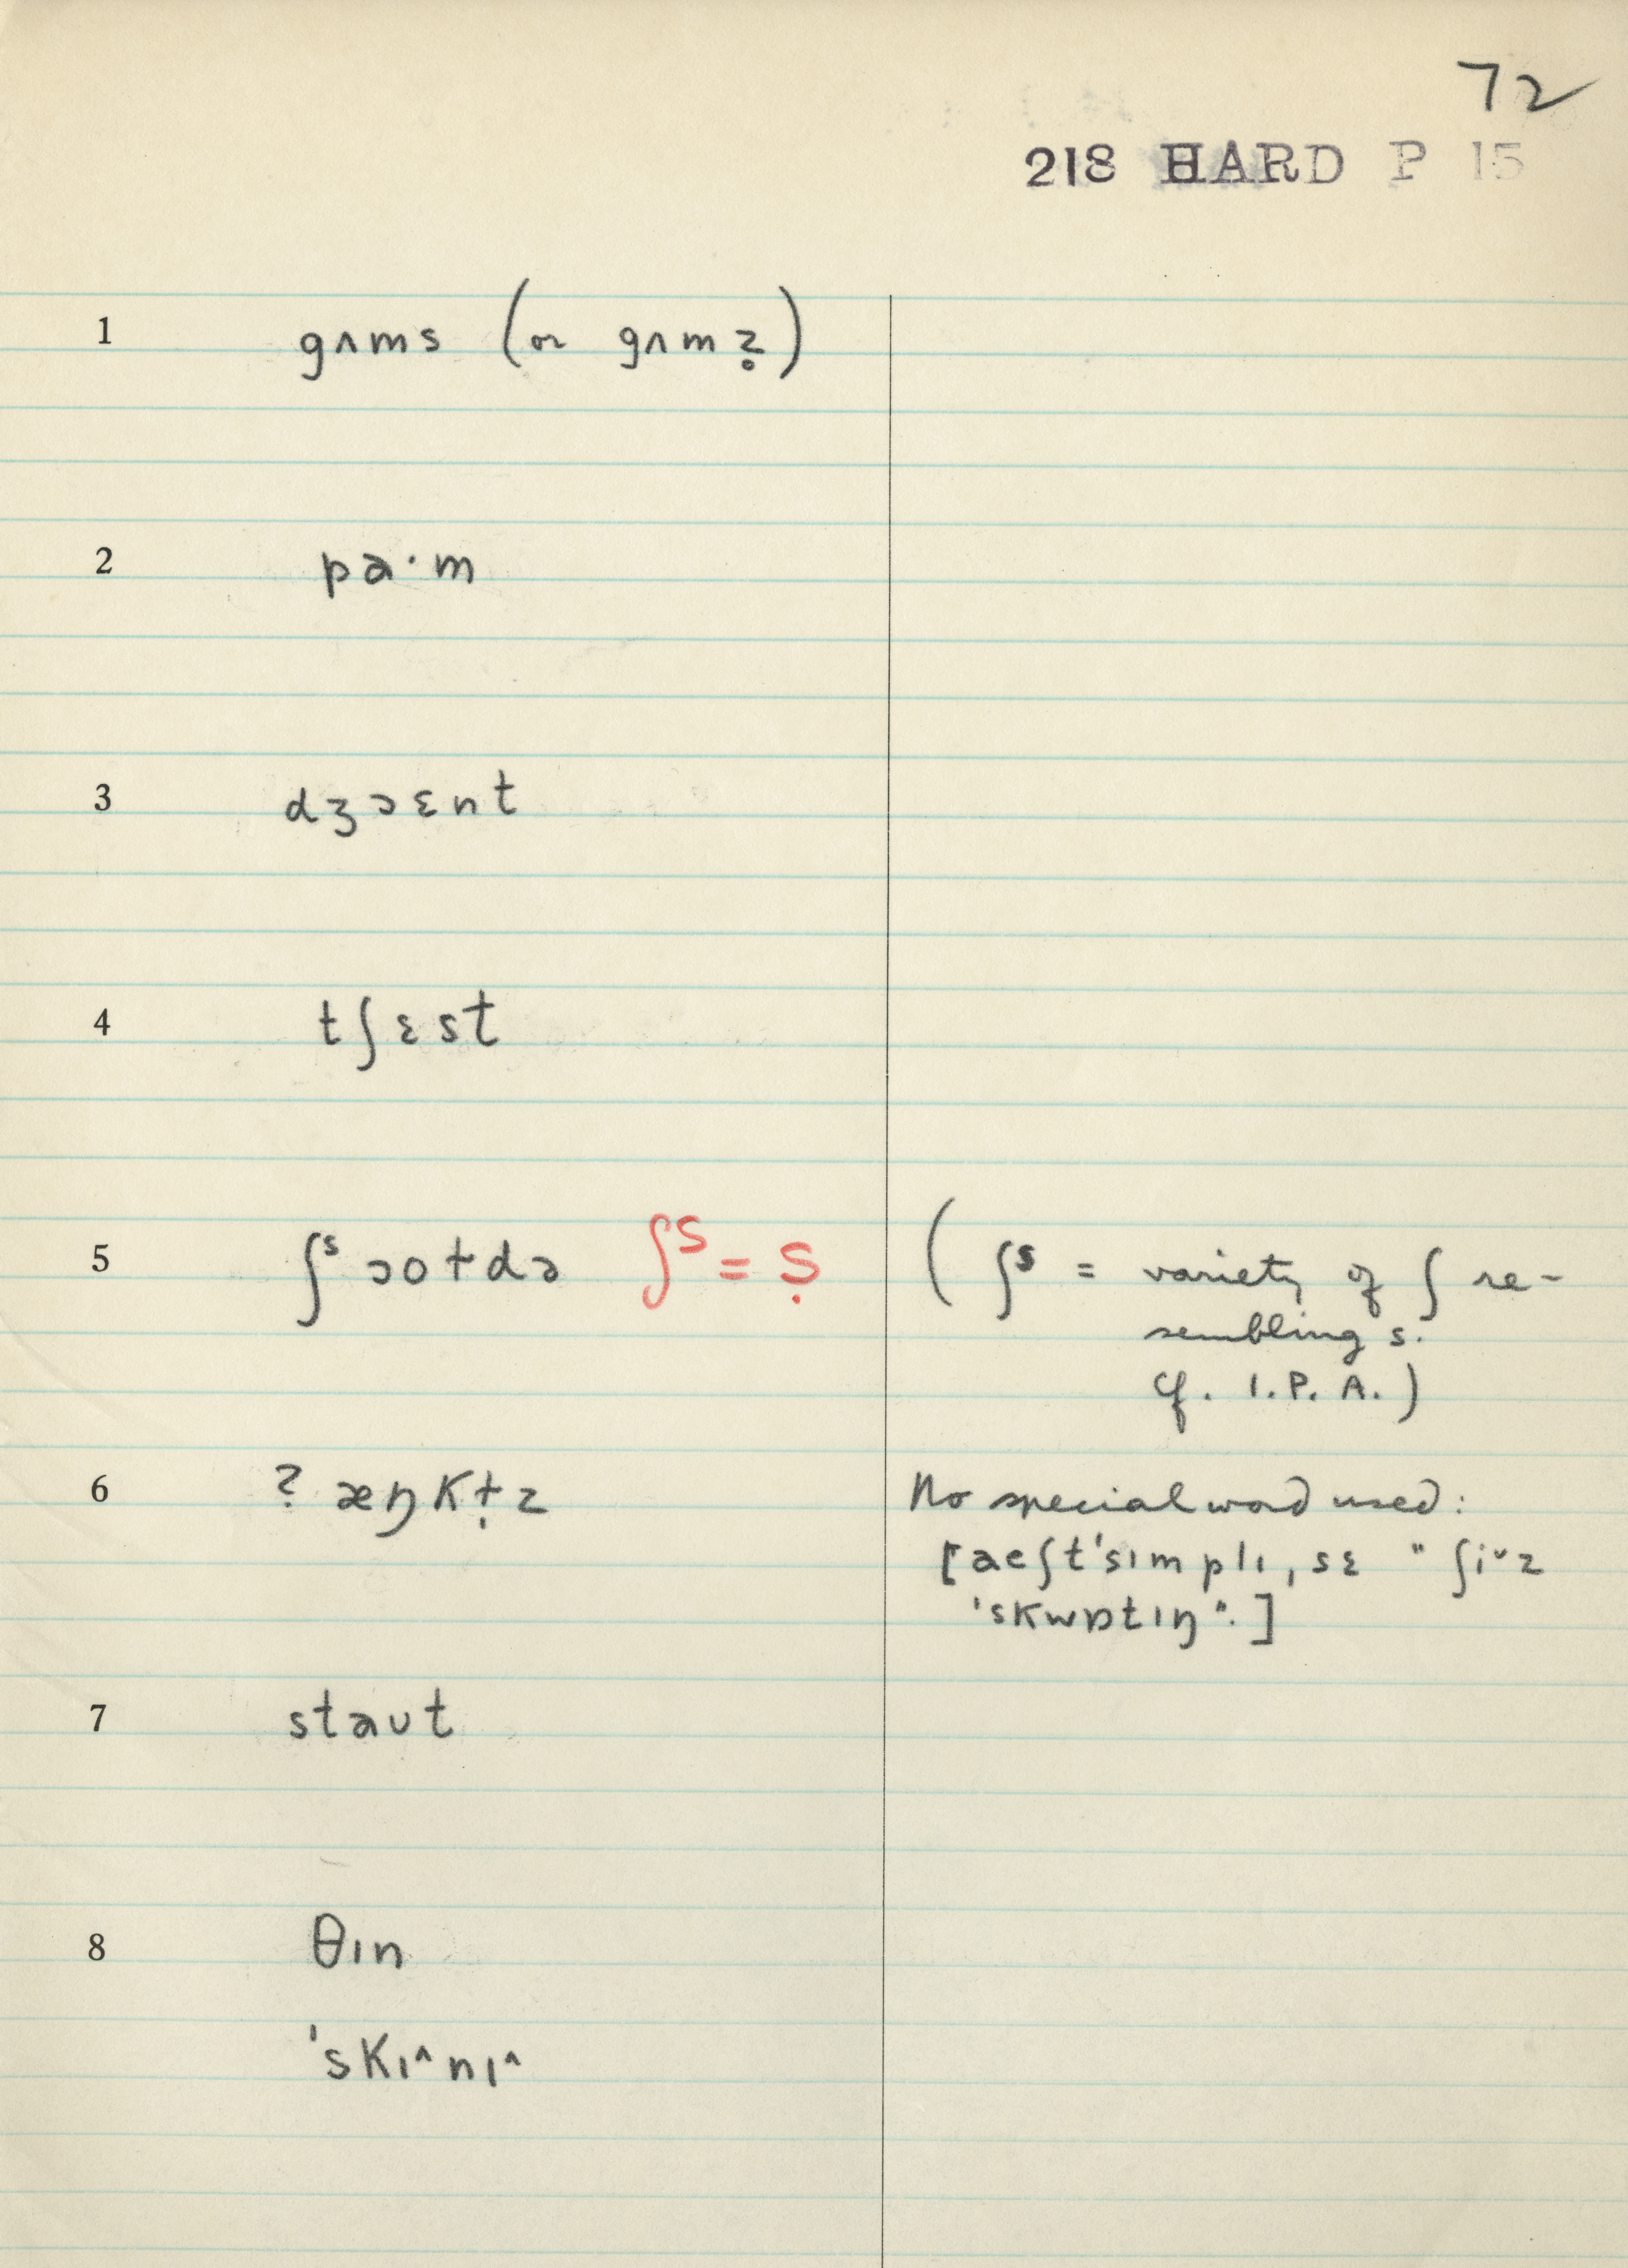 72
218 HARD P 15
1 gʌms (or gʌmz̥)
2 pa·m
3 dʒɔɛnt
4 tʃɛst
5 ʃˢɔoɫdə ʃˢ = ṣ (ʃˢ = variety of ʃ re-
sembling s.
cf. I.P.A.)
6 ? æŋkɫ̣z No special word used:
[aeʃt'sɪmplɪ, sɛ "ʃiˇz
'skwɒtɪŋ".]
7 staʊt
8 θɪn
'skɪ^nɪ^